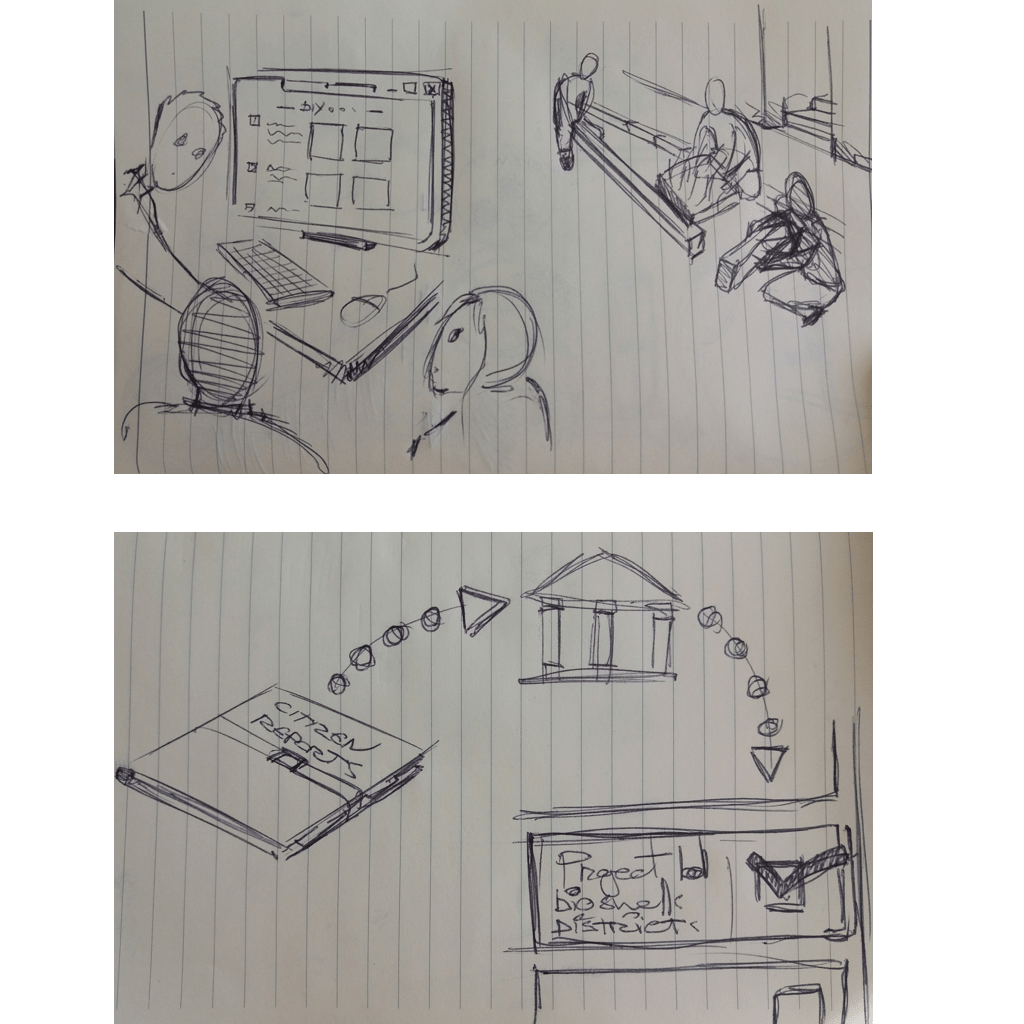 DIY...
CITIZEN
REPORTS
Project
bioswale
DISTRICT